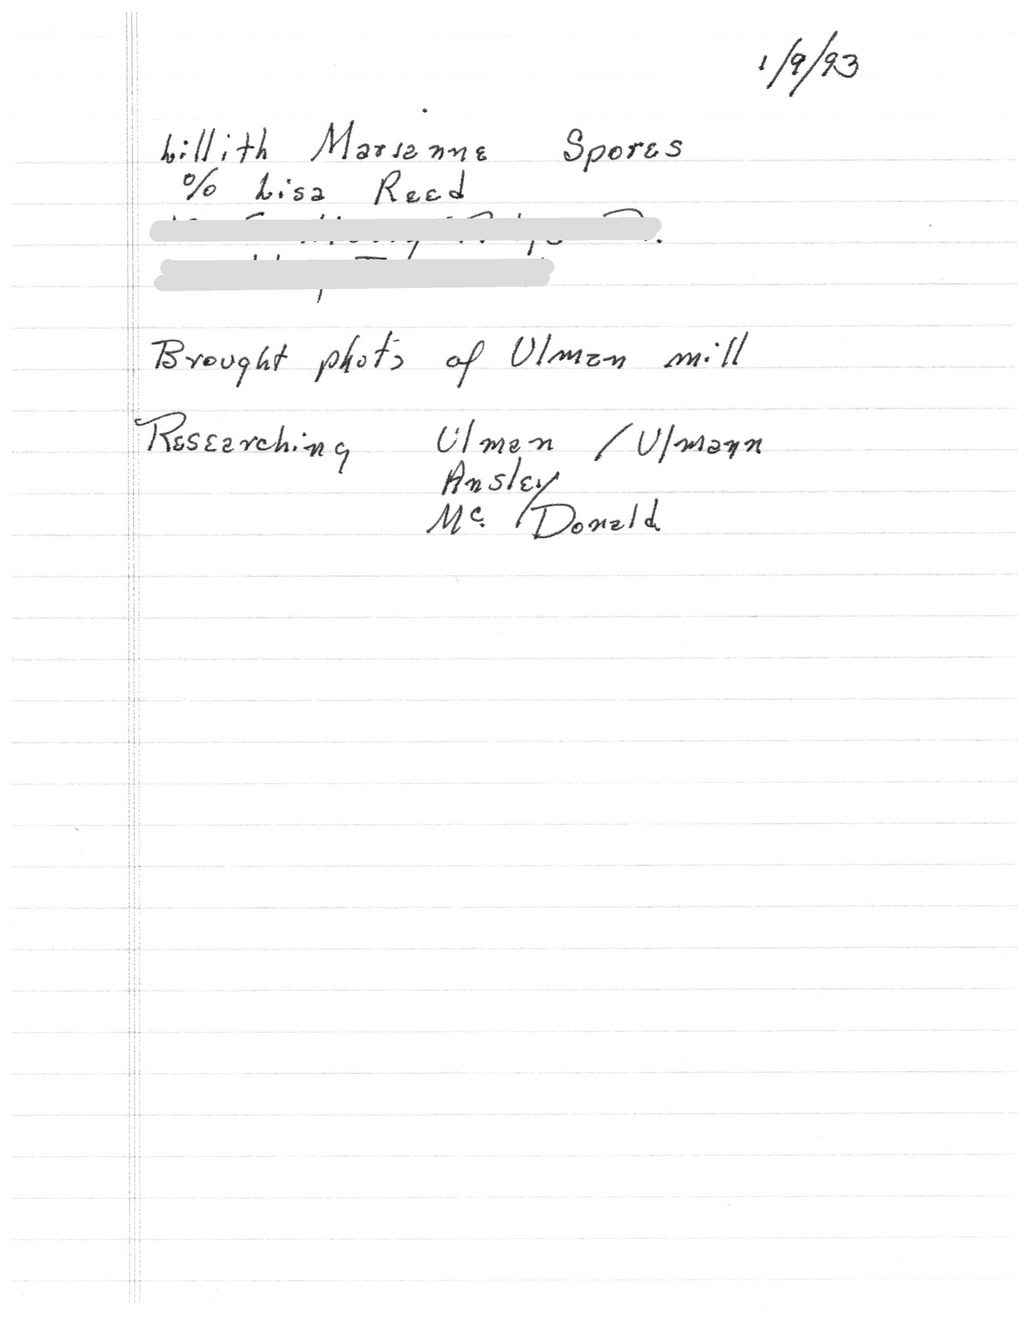 1/9/93
Lillith Marianne Spores
% Lisa Reed
Brought photo's of Ulman mill
Researching Ulman / Ulmann
Ansley
Mc. Donald